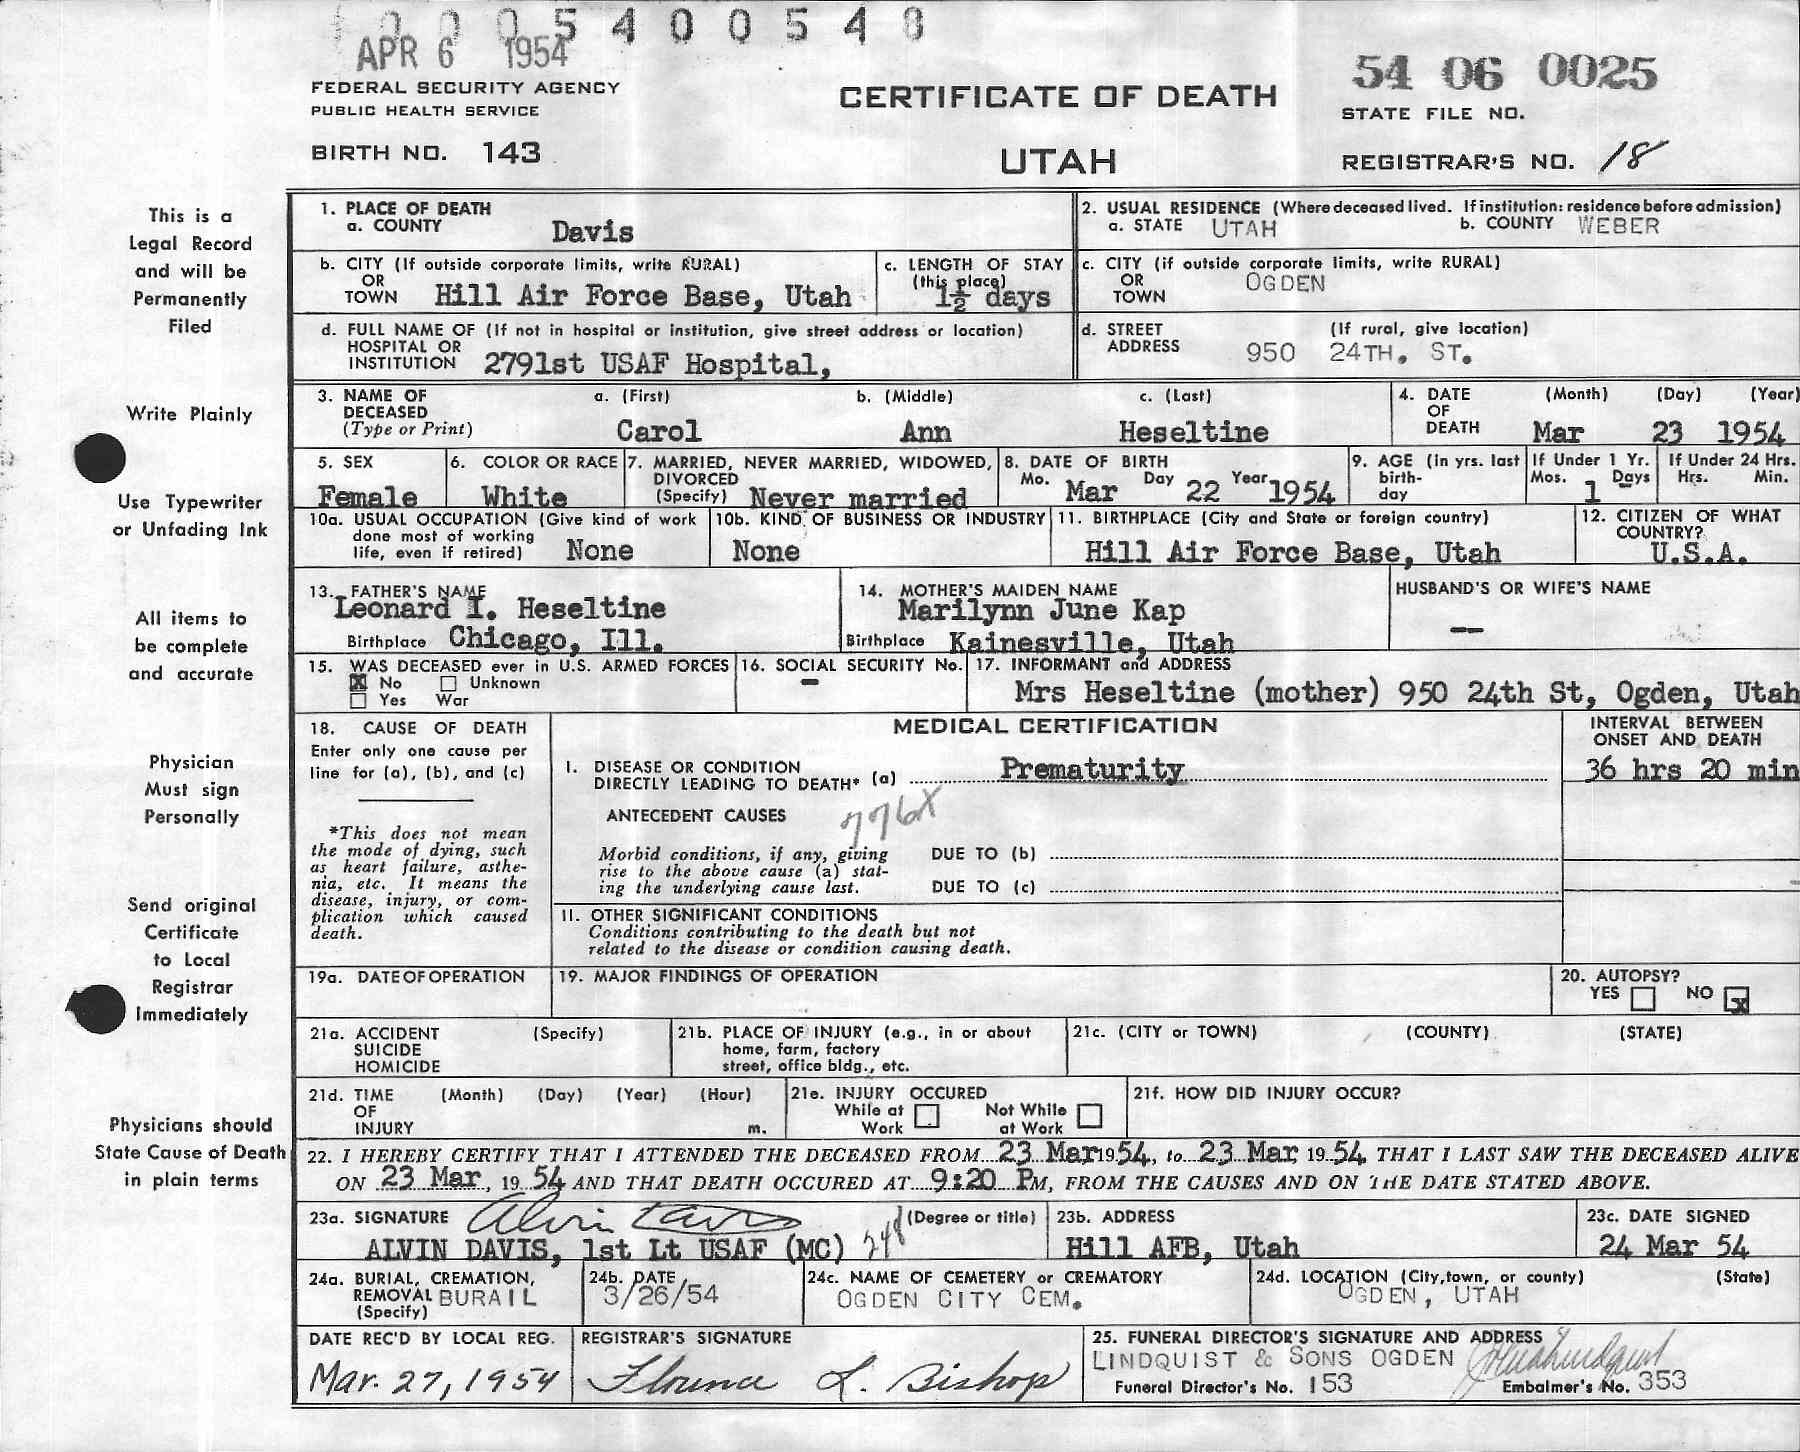 0 0 0 5 4 0 0 5 4 8
APR 6 1954
54 06 0025
FEDERAL SECURITY AGENCY
PUBLIC HEALTH SERVICE
CERTIFICATE OF DEATH
STATE FILE NO.
BIRTH NO. 143
UTAH
REGISTRAR'S NO. 18
This is a
Legal Record
and will be
Permanently
Filed
Write Plainly
Use Typewriter
or Unfading Ink
All items to
be complete
and accurate
Physician
Must sign
Personally
Send original
Certificate
to Local
Registrar
Immediately
Physicians should
State Cause of Death
in plain terms
1. PLACE OF DEATH
a. COUNTY Davis
2. USUAL RESIDENCE (Where deceased lived. If institution: residence before admission)
a. STATE UTAH b. COUNTY WEBER
b. CITY (If outside corporate limits, write RURAL)
OR
TOWN Hill Air Force Base, Utah
c. LENGTH OF STAY
(this place)
1½ days
c. CITY (if outside corporate limits, write RURAL)
OR OGDEN
TOWN
d. FULL NAME OF (If not in hospital or institution, give street address or location)
HOSPITAL OR
INSTITUTION 2791st USAF Hospital,
d. STREET (If rural, give location)
ADDRESS 950 24TH. ST.
3. NAME OF a. (First) b. (Middle) c. (Last)
DECEASED
(Type or Print) Carol Ann Heseltine
4. DATE (Month) (Day) (Year)
OF
DEATH Mar 23 1954
5. SEX
Female
6. COLOR OR RACE
White
7. MARRIED, NEVER MARRIED, WIDOWED,
DIVORCED
(Specify) Never married
8. DATE OF BIRTH
Mo. Mar Day 22 Year 1954
9. AGE (in yrs. last
birth-
day
If Under 1 Yr.
Mos. 1 Days
If Under 24 Hrs.
Hrs. Min.
10a. USUAL OCCUPATION (Give kind of work
done most of working
life, even if retired) None
10b. KIND OF BUSINESS OR INDUSTRY
None
11. BIRTHPLACE (City and State or foreign country)
Hill Air Force Base, Utah
12. CITIZEN OF WHAT
COUNTRY?
U.S.A.
13. FATHER'S NAME
Leonard I. Heseltine
Birthplace Chicago, Ill.
14. MOTHER'S MAIDEN NAME
Marilynn June Kap
Birthplace Kainesville, Utah
HUSBAND'S OR WIFE'S NAME
--
15. WAS DECEASED ever in U.S. ARMED FORCES
x No Unknown
Yes War
16. SOCIAL SECURITY No.
-
17. INFORMANT and ADDRESS
Mrs Heseltine (mother) 950 24th St, Ogden, Utah
18. CAUSE OF DEATH
Enter only one cause per
line for (a), (b), and (c)
*This does not mean
the mode of dying, such
as heart failure, asthe-
nia, etc. It means the
disease, injury, or com-
plication which caused
death.
MEDICAL CERTIFICATION
INTERVAL BETWEEN
ONSET AND DEATH
I. DISEASE OR CONDITION
DIRECTLY LEADING TO DEATH* (a) Prematurity
36 hrs 20 min
ANTECEDENT CAUSES 776X
Morbid conditions, if any, giving
rise to the above cause (a) stat-
ing the underlying cause last.
DUE TO (b)
DUE TO (c)
II. OTHER SIGNIFICANT CONDITIONS
Conditions contributing to the death but not
related to the disease or condition causing death.
19a. DATE OF OPERATION
19. MAJOR FINDINGS OF OPERATION
20. AUTOPSY?
YES NO x
21a. ACCIDENT (Specify)
SUICIDE
HOMICIDE
21b. PLACE OF INJURY (e.g., in or about
home, farm, factory
street, office bldg., etc.
21c. (CITY or TOWN) (COUNTY) (STATE)
21d. TIME (Month) (Day) (Year) (Hour)
OF
INJURY m.
21e. INJURY OCCURED
While at Work
Not While at Work
21f. HOW DID INJURY OCCUR?
22. I HEREBY CERTIFY THAT I ATTENDED THE DECEASED FROM 23 Mar 1954, to 23 Mar, 1954 THAT I LAST SAW THE DECEASED ALIVE
ON 23 Mar, 1954 AND THAT DEATH OCCURED AT 9:20 PM, FROM THE CAUSES AND ON THE DATE STATED ABOVE.
23a. SIGNATURE Alvin Davis (Degree or title)
ALVIN DAVIS, 1st Lt USAF (MC)
23b. ADDRESS
Hill AFB, Utah
23c. DATE SIGNED
24 Mar 54
24a. BURIAL, CREMATION,
REMOVAL BURAIL
(Specify)
24b. DATE
3/26/54
24c. NAME OF CEMETERY or CREMATORY
OGDEN CITY CEM.
24d. LOCATION (City, town, or county) (State)
OGDEN, UTAH
DATE REC'D BY LOCAL REG.
Mar. 27, 1954
REGISTRAR'S SIGNATURE
Florence L. Bishop
25. FUNERAL DIRECTOR'S SIGNATURE AND ADDRESS
LINDQUIST & SONS OGDEN
Funeral Director's No. 153 Embalmer's No. 353